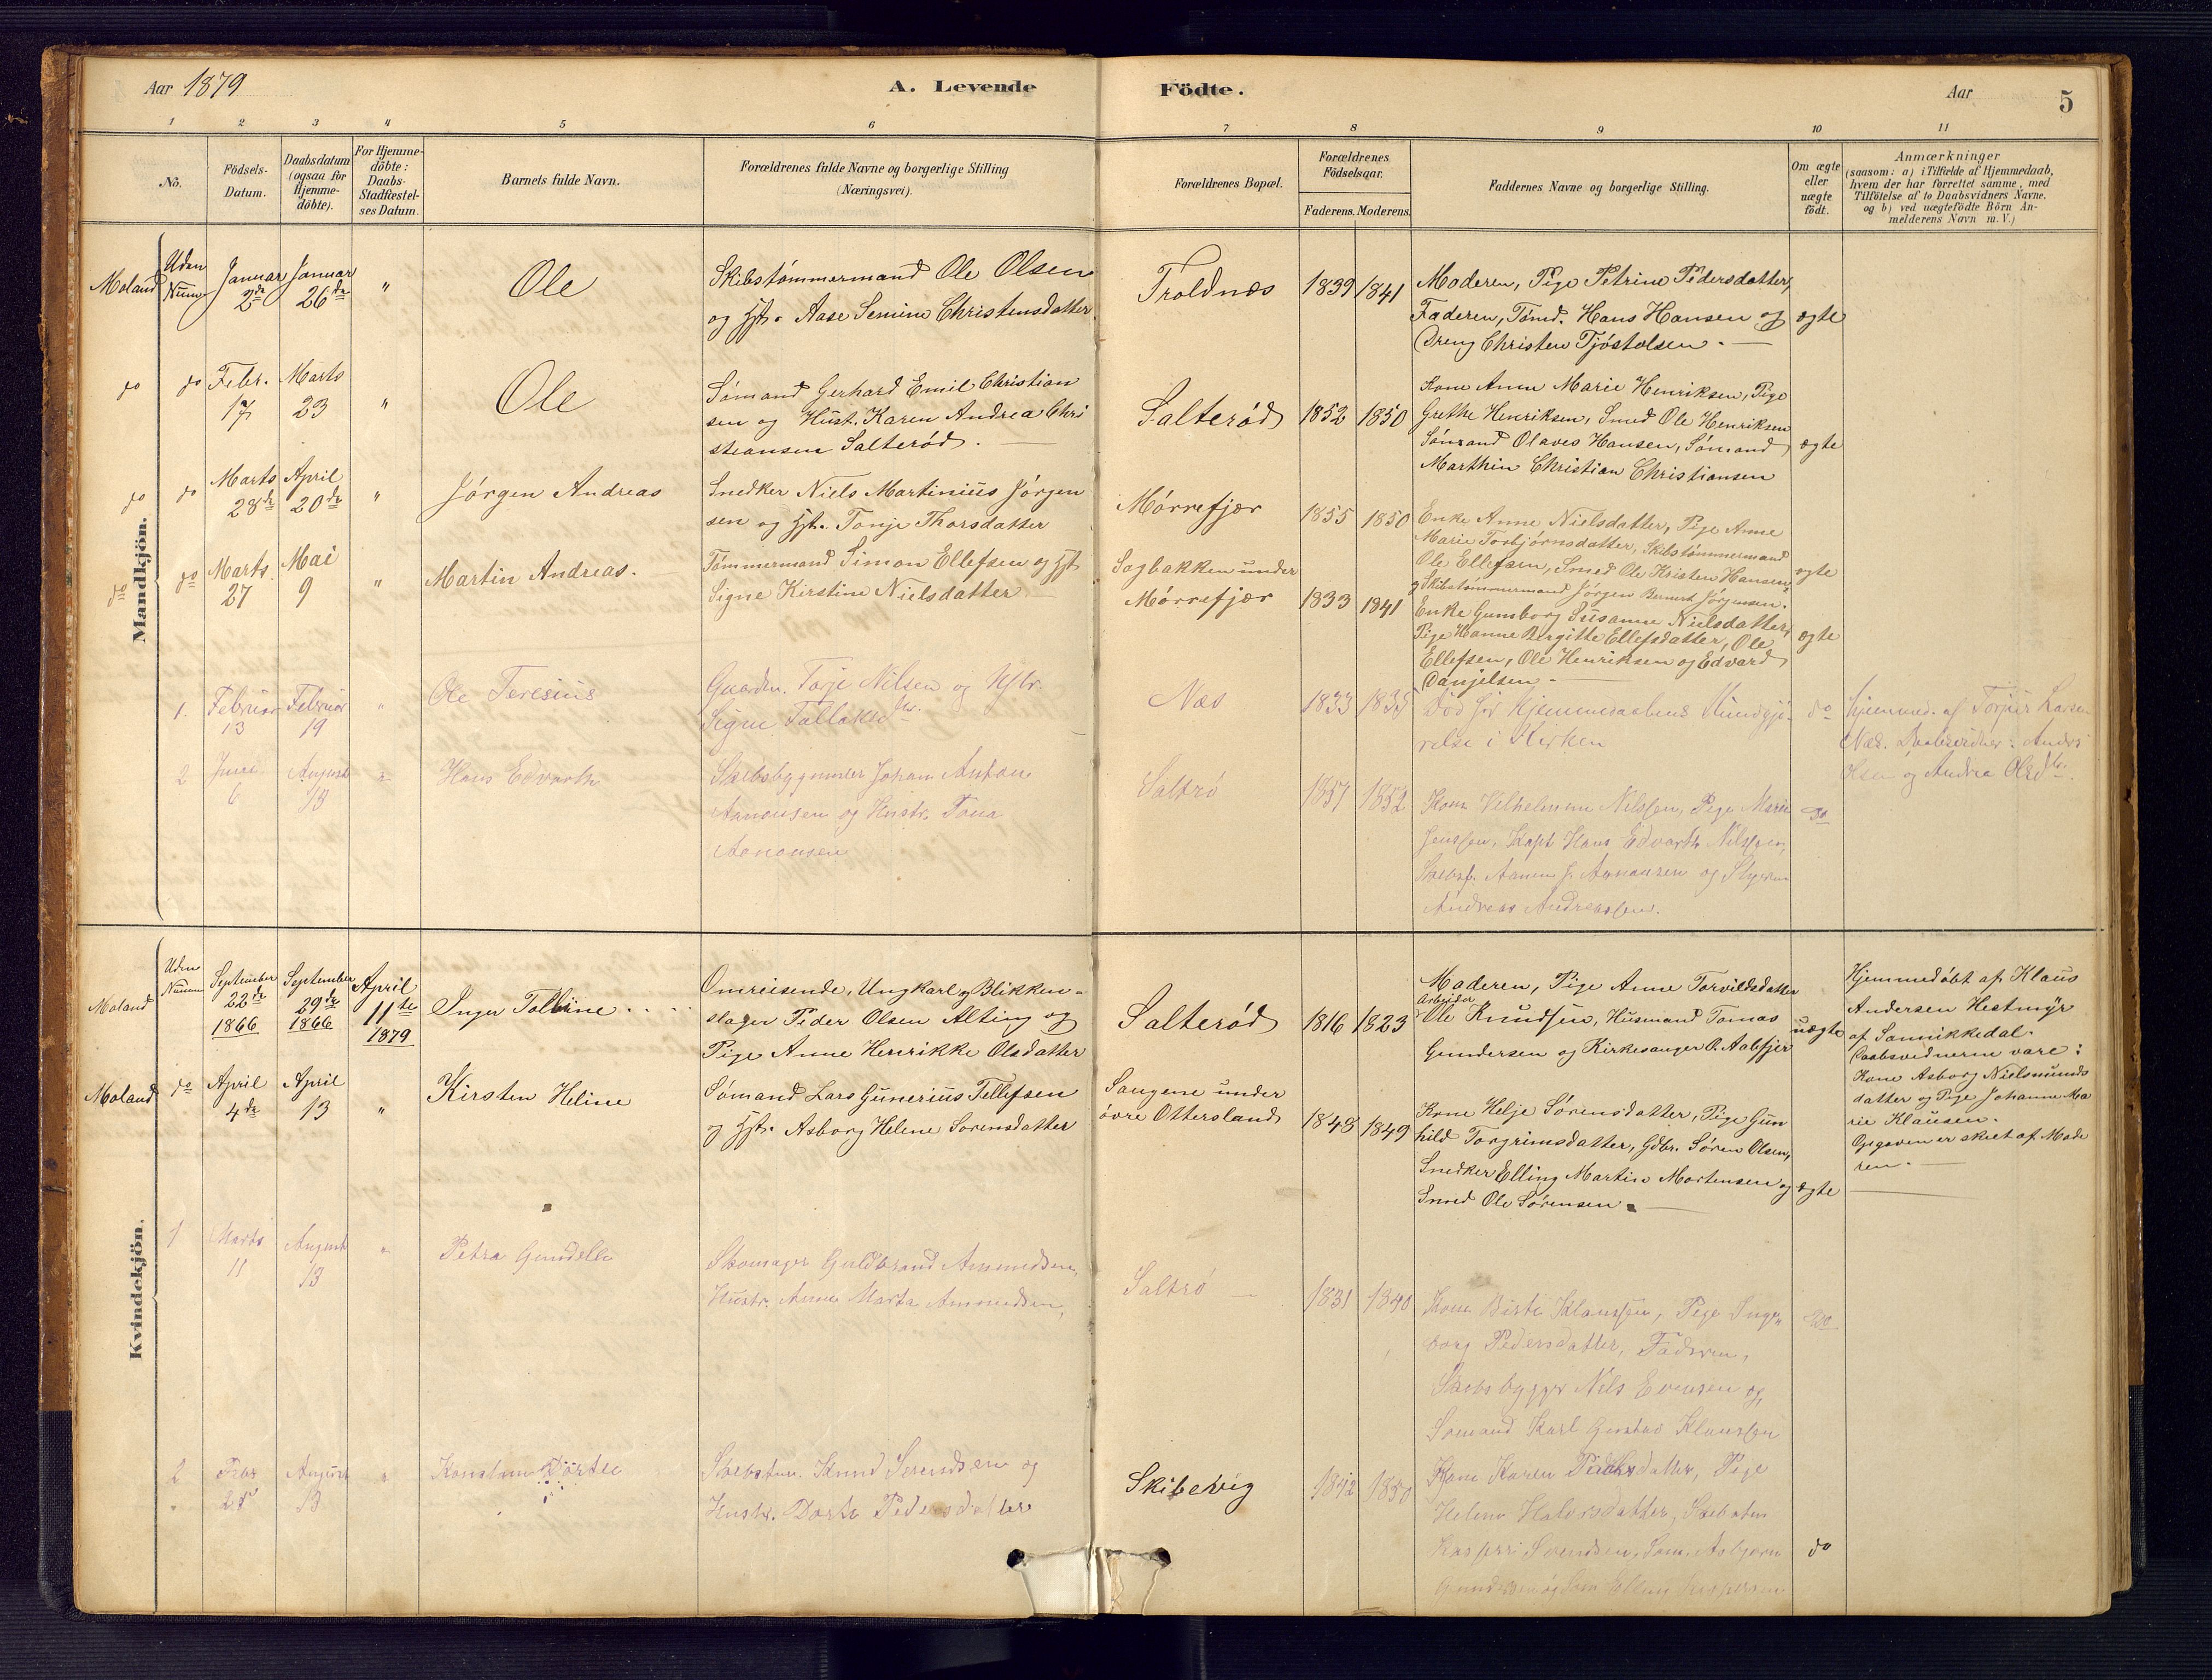 Aar 1879
A. Levende
Födte.
Aar
5
1 2 3 4 5 6 7 8 9 10 11
No.
Födsels-
Datum.
Daabsdatum
(ogsaa for
Hjemme-
döbte).
For Hjemme-
döbte:
Daabs-
Stadfæstel-
ses Datum.
Barnets fulde Navn.
Forældrenes fulde Navne og borgerlige Stilling
(Næringsvei).
Forældrenes Bopæl.
Forældrenes
Födselsaar.
Faderens. Moderens.
Faddernes Navne og borgerlige Stilling.
Om ægte
eller
uægte
födt.
Anmærkninger
(saasom: a) i Tilfælde af Hjemmedaab,
hvem der har forrettet samme, med
Tilföielse af to Daabsvidners Navne,
og b) ved uægtefödte Börn An-
melderens Navn m. V.)
Mandkjön.
Moland
Uden
Num
Januar
2de
Januar
26de
"
Ole
Skibstømmermand Ole Olsen
og Hst. Aase Semine Christensdatter
Troldnes
1839
1841
Moderen, Pige Petrine Pedersdatter,
Faderen, Tømd. Hans Hansen og
Dreng Christen Tjøstolsen. —
ægte
do
do
Febr.
17
Marts
23
"
Ole
Sømand Gerhard Emil Christian
sen og Hust. Karen Andrea Chri
steansen Salterød. —
Salterød
1852
1850
Kone Anne Marie Henriksen, Pige
Grethe Henriksen, Smed Ole Henriksen
Sømand Olaves Hansen, Sømand
Marthin Christian Christiansen
ægte
do
do
Marts
28de
April
20de
"
Jørgen Andreas
Snedker Niels Martinius Jørgen
sen og Hst. Tonje Thorsdatter
Mørrefjær
1855
1850
Enke Anne Nielsdatter, Pige Anne
Marie Torbjørnsdatter, Skibstømmermand
Ole Ellefsen, Smed Ole Kristen Hansen
og Skibstømmermand Jørgen Bernert Jørgensen.
ægte
do
do
Marts
27
Mai
9
"
Martin Andreas.
Tømmermand Simon Ellefsen og Hst
Signe Kirstine Nielsdatter
Sagbakken under
Mørrefjær
1833
1841
Enke Gunborg Susanne Nielsdatter,
Pige Hanne Birgitte Ellefsdatter, Ole
Ellefsen, Ole Henriksen og Edvard
Danjelsen —
ægte
1.
Februar
13
Februar
19
"
Ole Teresius
Gaardm. Torje Nilsen og Hstr.
Signe Tallaksdtr.
Næs
1833
1835
Død før Hjemmedaabens Kundgjø-
relse i Kirken
do
Hjemmed. af Torjus Larsen
Næs. Daabsvidner: Anders
Olsen og Andrea Olsdtr.
2
Juni
6
August
13
"
Hans Edvarth
Skibsbygmster Johan Anton
Aanonsen og Hustr. Tona
Aanonsen
Saltrø
1857
1852
Kone Vilhelmine Nilssen, Pige Marie
Jenssen, Kapt Hans Edvarth Nilssen,
Skibsf. Aanen J. Aanonsen og Styrm
Andreas Andreassen.
do
Kvindekjön.
Moland
Uden
Numm
September
22de
1866
September
29de
1866
April
11te
1879
Inger Tolline . . . . .
Omreisende, Ungkarl og Blikken-
slager Peder Olsen Alting og
Pige Anne Henrikke Olsdatter
Salterød
1816
1823
Moderen, Pige Anne Torvildsdatter
Arbeider
Ole Knudsen, Husmand Tomas
Gundersen og Kirkesanger O. Aalefjer
uægte
Hjemmedøbt af Klaus
Andersen Hestmyr
af Sannikkedal.
Daabsvidnerne vare:
Kone Asborg Nielsmunds
datter og Pige Johanne Ma
rie Klausen.
Opgaven er skeet af Mode
ren. —
Moland
do
April
4de
April
13
"
Kirsten Heline
Sømand Lars Gunerius Tellefsen
og Hst. Asborg Helene Sørensdatter
Saugene under
øvre Ottersland
1848
1849
Kone Helje Sørensdatter, Pige Gun
hild Torgrimsdatter, Gdbr. Søren Olsen,
Snedker Elling Martin Mortensen og
Smed Ole Sørensen. —
ægte
1
Marts
11
August
13
"
Petra Gundelle
Skomager Guldbrand Amundsen,
Hustr. Anne Marta Amundsen,
Saltrø —
1831
1840
Kone Birte Klaussen, Pige Inge
borg Pedersdatter, Faderen,
Skibsbygger Nils Evensen og
Sømand Karl Gustav Klaussen
do
2
August
13
"
Dorte
Knud Svendsen og
Hustr. Dorte Pedersdatter
Skibevig
1842
1850
Kone Karen Pedersdatter, Pige
Helene Halvorsdatter, Skibstøm
Kasper Svendsen, Søm. Asbjørn
Gundersen og Søm Elling Kaspersen
do